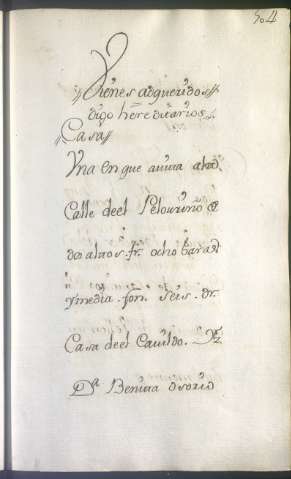 504
Vienes adqueridos
digo hereditarios.
Casa
Vna en que auiua
Calle deel Pelourino de
dos altos. fr. ocho baras
y media. fon. seis. dr.
Casa deel Cauildo. Yz
Dª Benita Osorio